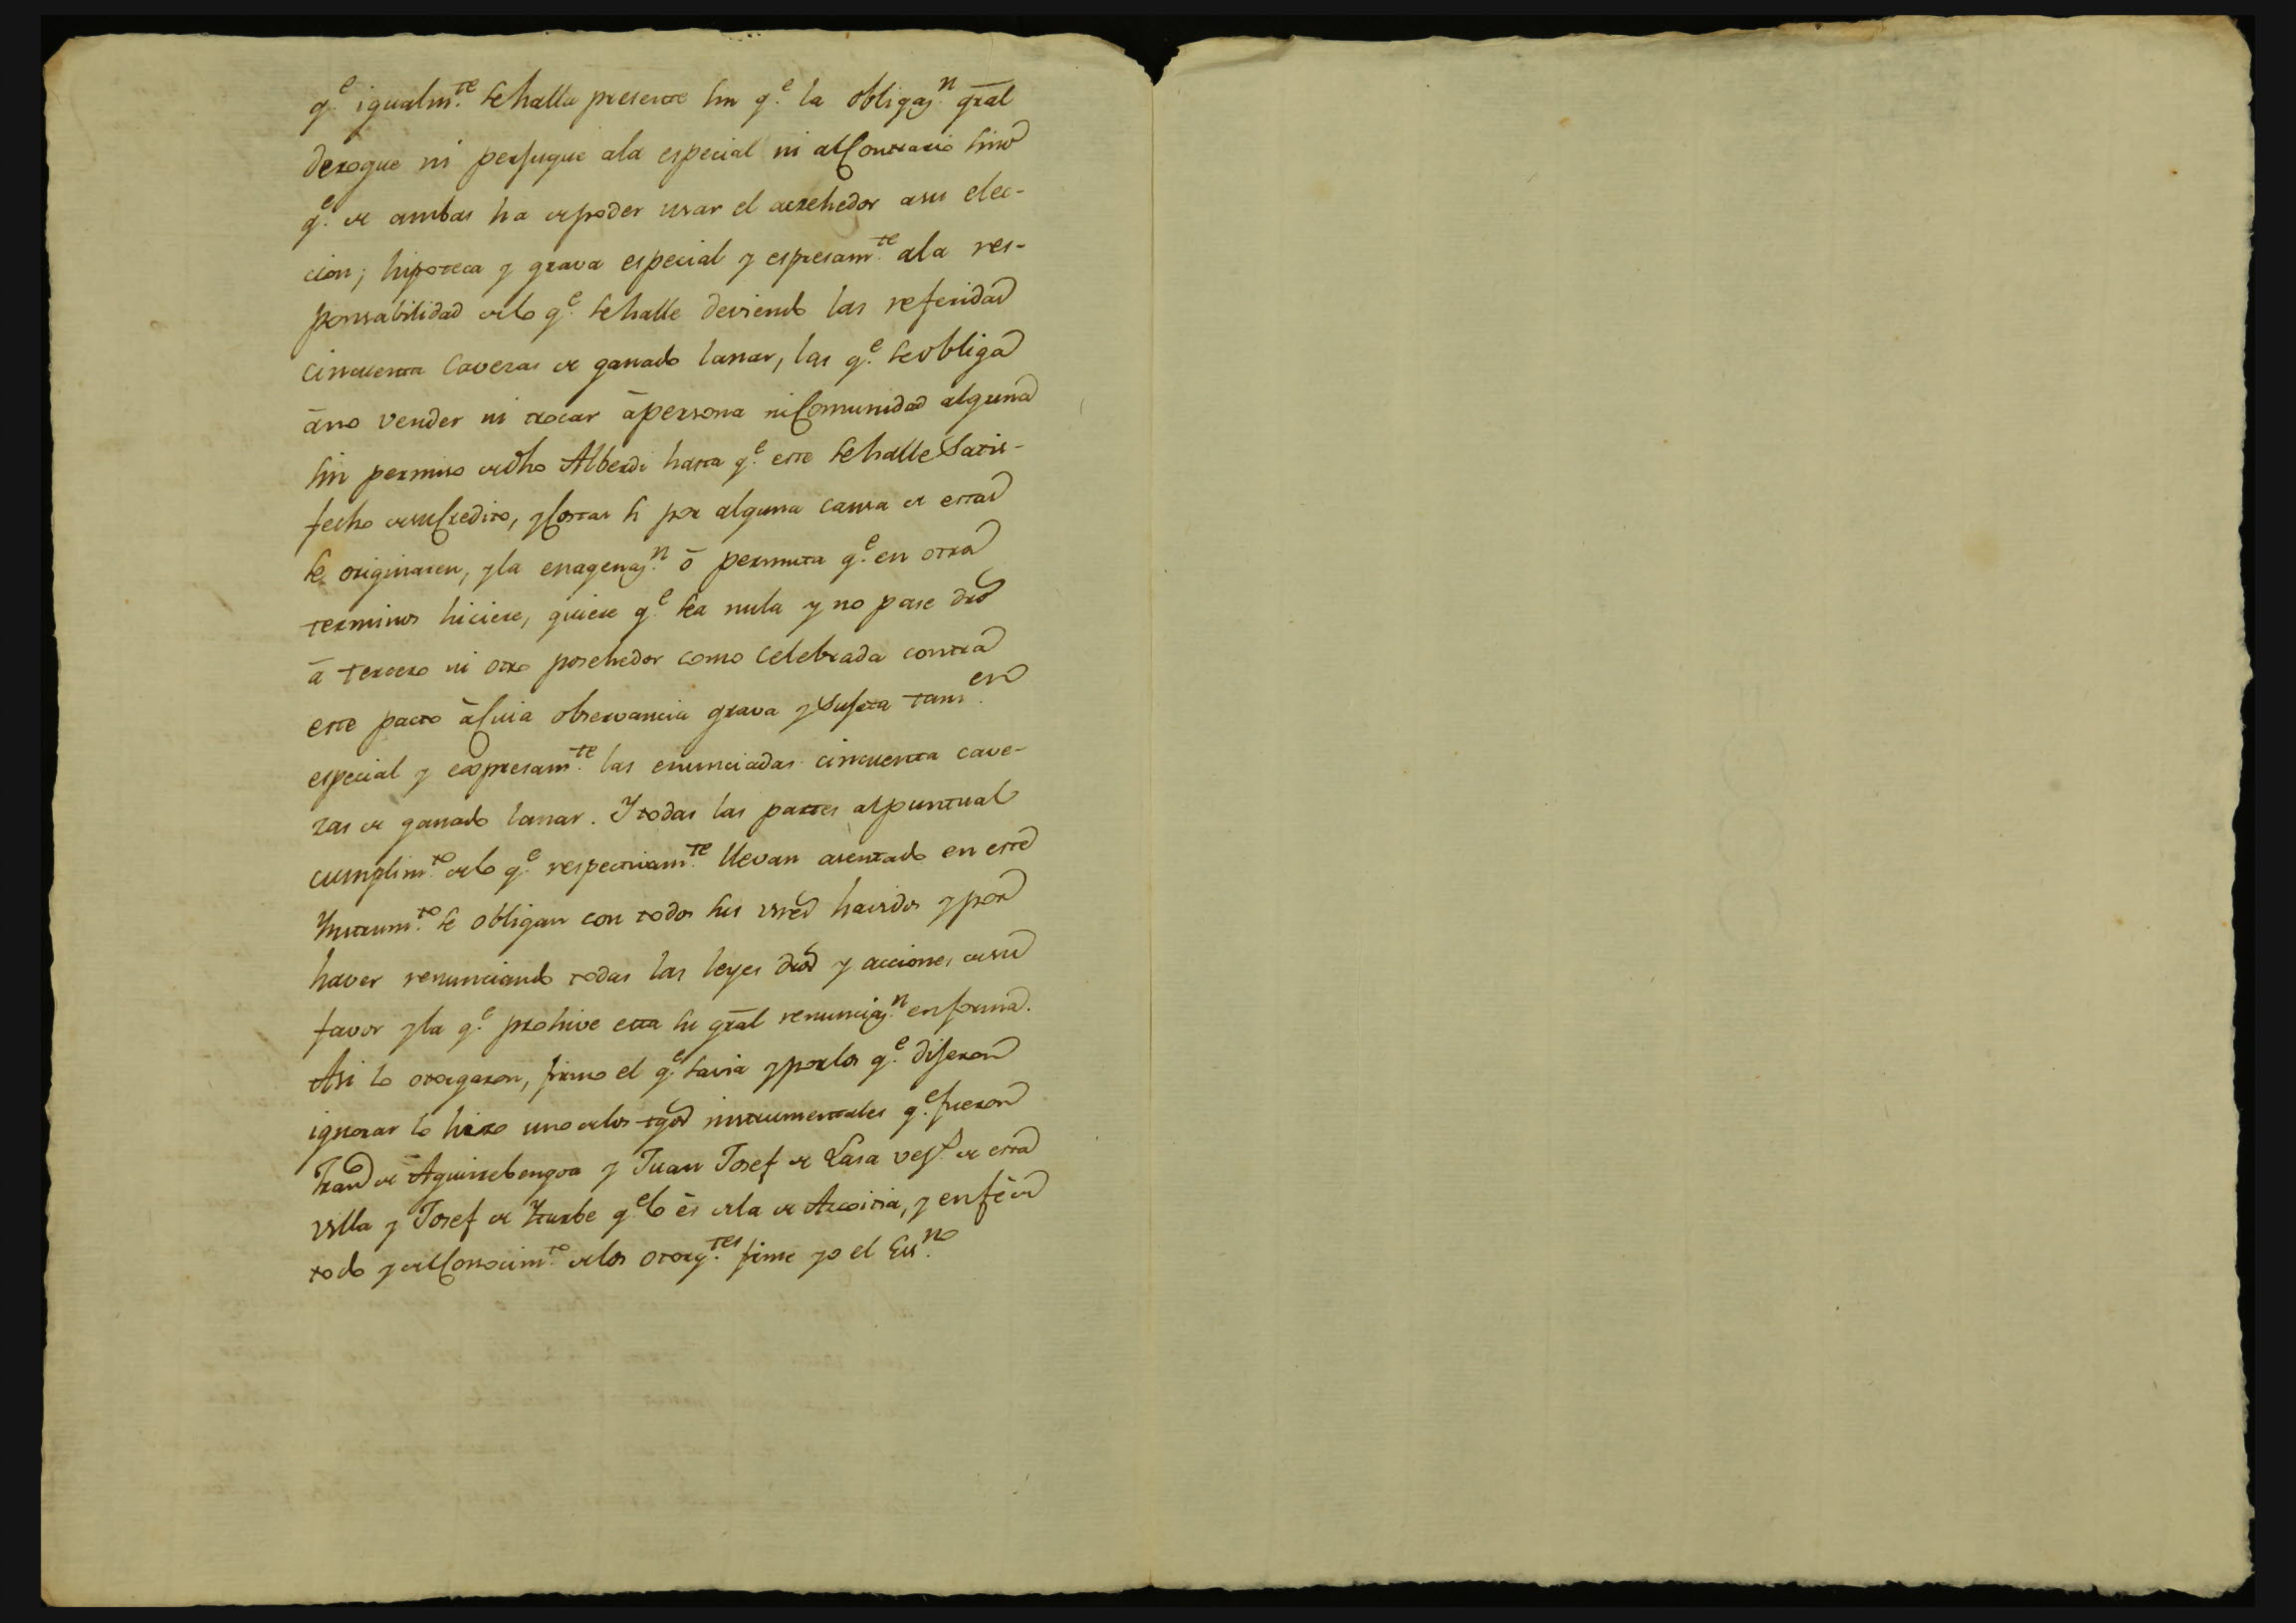 q.e igualm.te se halla presente sin q.e la obligaz.n gral
derogue ni perjugue ala especial ni alContrario sino
q.e de ambas ha depoder usar el acrehedor asu elec-
cion; hipoteca y grava especial y espresam.te ala res-
ponsabilidad delo q.e sehalle deviendo las referidas
cincuenta Caveras de ganado lanar, las q.e seobliga
áno vender ni trocar ápersona niComunidad alguna
sin permiso dedho Alberdi hasta q.e este sehalle Satis-
fecho desuCredito, yCostas si por alguna causa de estas
se originaren, yla enagenaz.n ó permuta q.e en otra
terminos hiciere, quiere q.e sea nula y no pase dro
á tercero ni otro posehedor como celebrada contra
este pacto áCuia observancia grava ySujeta tam.en
especial y expresam.te las enunciadas cincuenta cave-
zas de ganado lanar. Ytodas las partes alpuntual
cumplim.to delo q.e respectivam.te llevan asentado en este
Ynstrum.to se obligan con todos sus vnes havidos ypor
haver renunciando todas las leyes dros y acciones desu
favor yla q.e prohive esta su gral renunciaz.n enforma.
Asi lo otorgaron, firmo el q.e savia yporlos q.e dijeron
ignorar lo hizo uno delos tgos instrumentales q.e fueron
Fran.co de Aguirrebengoa y Juan Josef de Lasa vez.s de esta
villa y Josef de Yturbe q.e lo és dela de Azcoitia, y enfé de
todo y delConocim.to delos otorg.tes firme yo el Ess.no